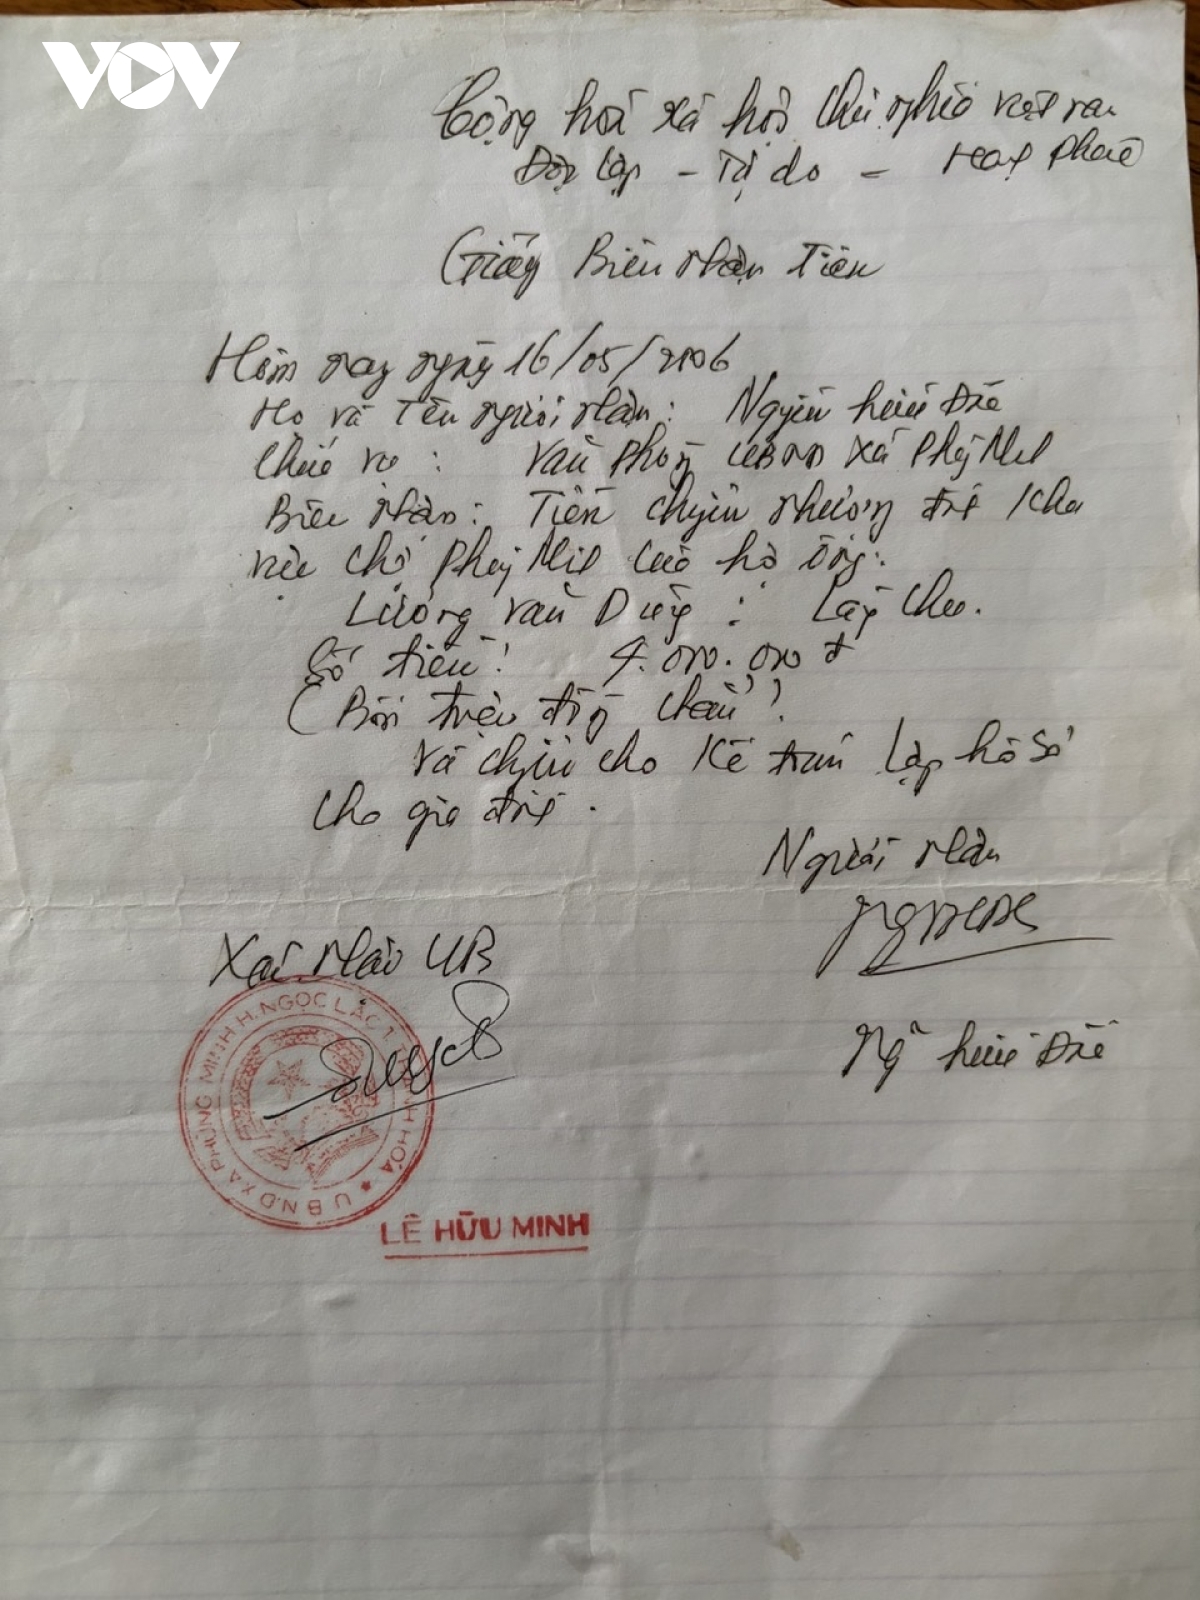 VOV
Cộng hoà xã hội chủ nghĩa việt nam
Độc lập - Tự do - Hạnh phúc
Giấy Biên nhận Tiền
Hôm nay ngày 16/05/2006
Họ và Tên người nhận: Nguyễn hữu Đề
Chức vụ : Văn phòng UBND xã Phùng Minh
Biên nhận: Tiền chuyển nhượng đất khu
vực chợ Phùng Minh của hộ ông:
Lương Văn Dũng : Làng Chu.
Số tiền: 4.000.000 đ
(Bốn triệu đồng chẵn)
Và chuyển cho Kế toán lập hồ sơ
cho gia đình.
Người nhận
Xác nhận UB
Ng hữu Đề
U.B.N.D XÃ PHÙNG MINH H. NGỌC LẶC T. THANH HÓA
LÊ HỮU MINH